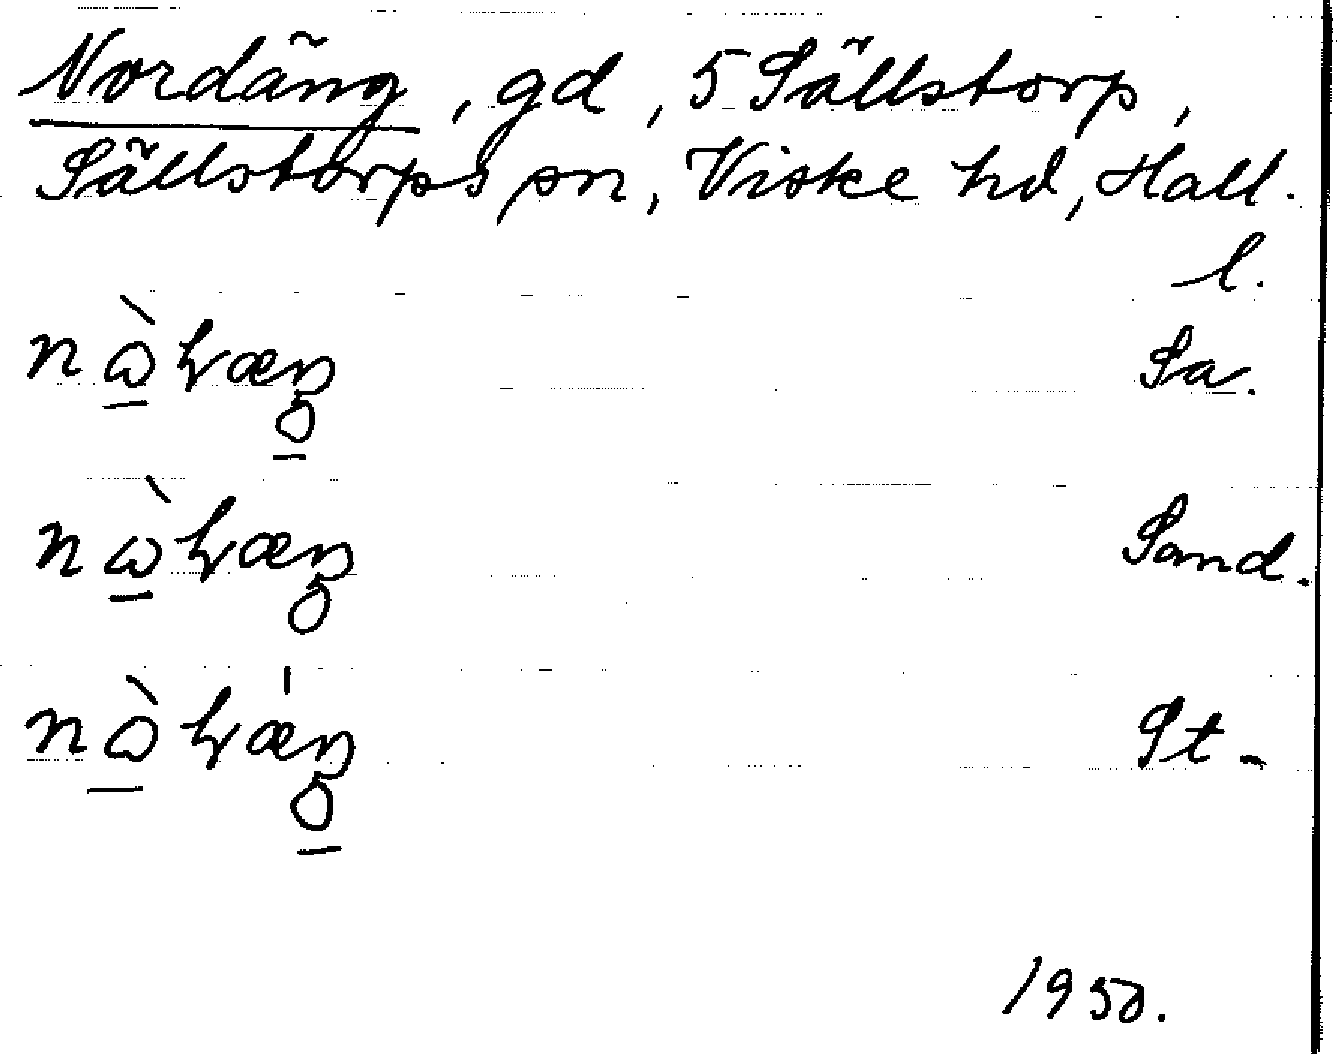 Nordäng, gd, 5 Sällstorp,
Sällstorps sn, Viske hd, Hall.
l.
Sa.
Sand.
St.
1950.